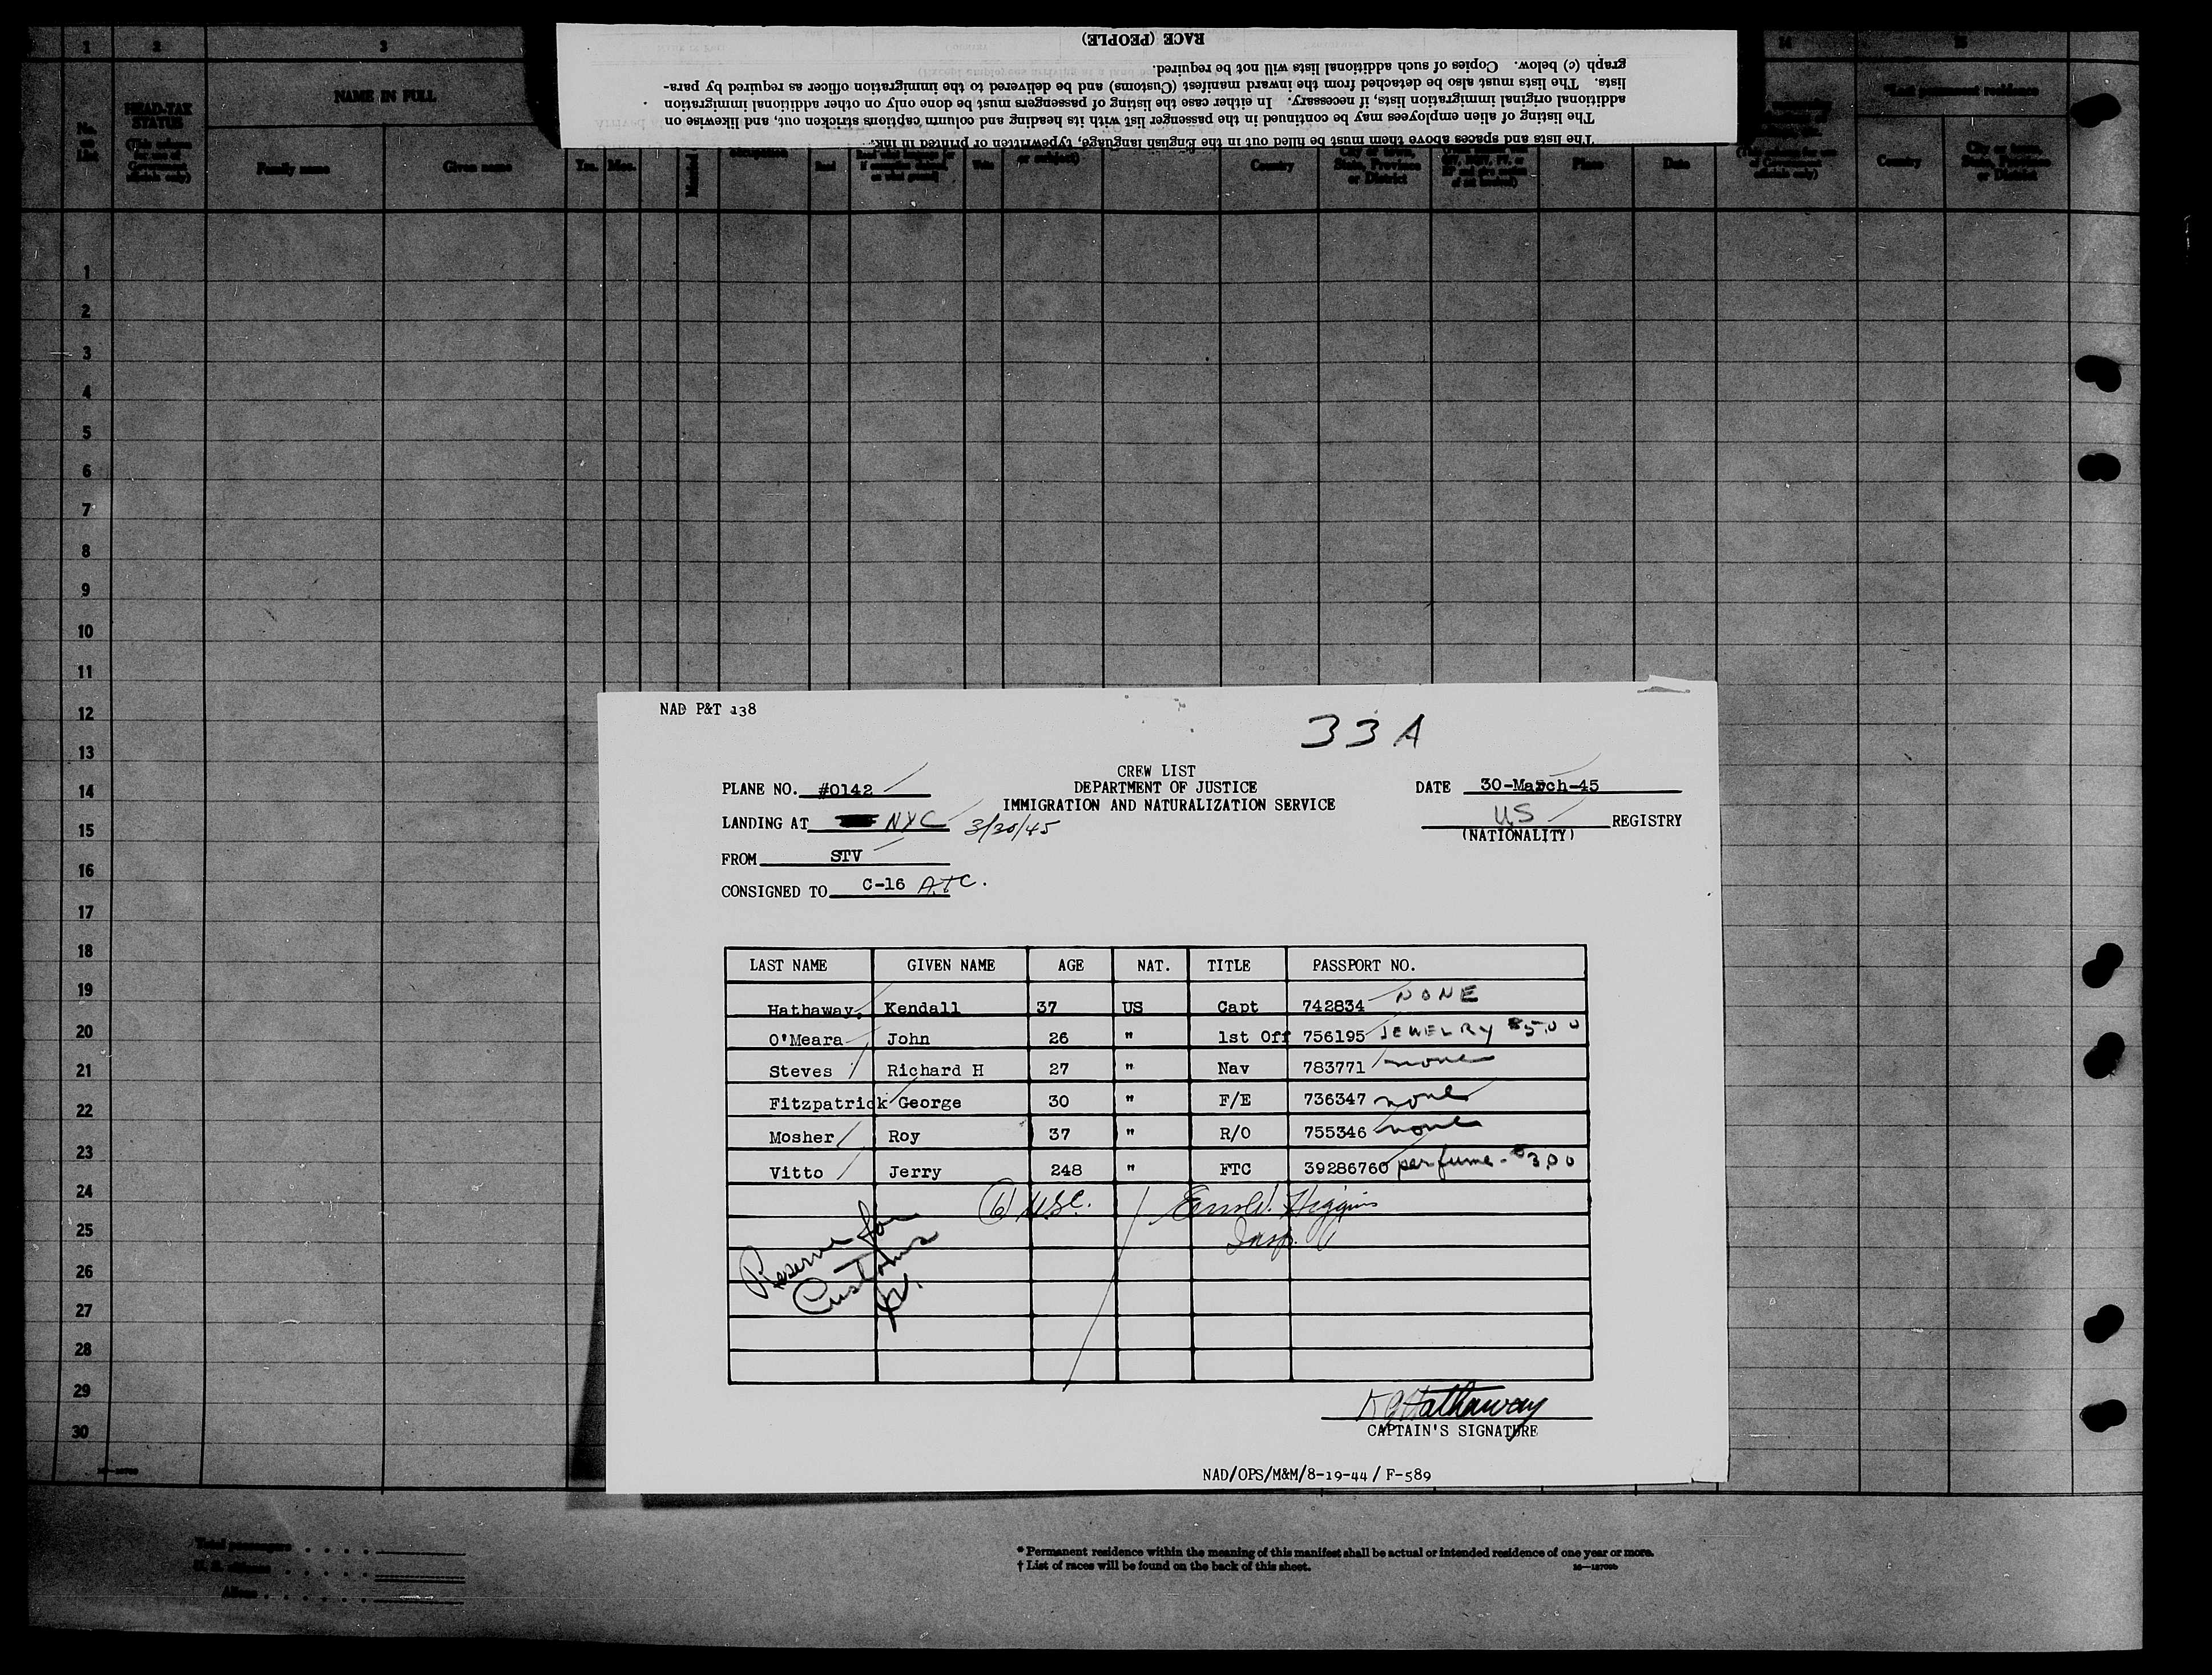 1 2 3 14 15
RACE (PEOPLE)
graph (c) below. Copies of such additional lists will not be required.
lists. The lists must also be detached from the inward manifest (Customs) and be delivered to the immigration officer as required by para-
additional original immigration lists, if necessary. In either case the listing of passengers must be done only on other additional immigration
The listing of alien employees may be continued in the passenger list with its heading and column captions stricken out, and likewise on
The lists and spaces above them must be filled out in the English language, typewritten or printed in ink.
No. on List
HEAD-TAX STATUS
(This column for use of Government officials only)
NAME IN FULL
Family name Given name Yrs. Mos. Married Read Write or subject) Country
City or town, State, Province or District
Place Date
*Last permanent residence
Country
City or town, State, Province or District
1
2
3
4
5
6
7
8
9
10
11
12
13
14
15
16
17
18
19
20
21
22
23
24
25
26
27
28
29
30
NAD P&T 138
33A
CREW LIST
PLANE NO. #0142 DEPARTMENT OF JUSTICE DATE 30-March-45
IMMIGRATION AND NATURALIZATION SERVICE
LANDING AT NYC 3/30/45 US REGISTRY
(NATIONALITY)
FROM STV
CONSIGNED TO C-16 ATC.
LAST NAME GIVEN NAME AGE NAT. TITLE PASSPORT NO.
Hathaway, Kendall 37 US Capt 742834 NONE
O'Meara John 26 " 1st Off 756195 JEWELRY $5.00
Steves Richard H 27 " Nav 783771 none
Fitzpatrick George 30 " F/E 736347 none
Mosher Roy 37 " R/O 755346 none
Vitto Jerry 248 " FTC 39286760 perfume - $3.00
(6) USC. Higgins
Insp.
Reserve for
Customs
KGHathaway
CAPTAIN'S SIGNATURE
NAD/OPS/M&M/8-19-44/ F-589
Total passengers . . . .
U. S. citizens . . . . .
Aliens . . . . . .
* Permanent residence within the meaning of this manifest shall be actual or intended residence of one year or more.
† List of races will be found on the back of this sheet.